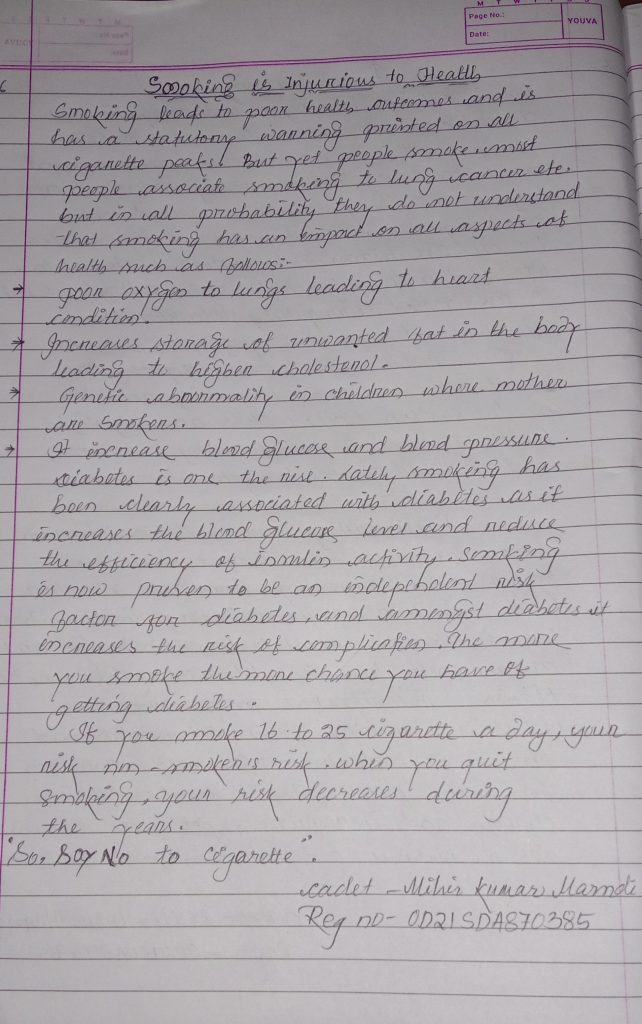 M T W T F S S
Page No.:
Date:
YOUVA
Smoking is Injurious to Health
Smoking leads to poor health outcomes and is
has a statutory warning printed on all
cigarette peaks. But yet people smoke, most
people associate smoking to lung cancer etc.
but in all probability they do not understand
that smoking has an impact on all aspects of
health such as follows:-
→ poor oxygen to lungs leading to heart
condition.
→ Increases storage of unwanted fat in the body
leading to higher cholesterol.
→ Genetic abnormality in children where mother
are smokers.
→ It increase blood glucose and blood pressure.
diabetes is one the rise. Lately smoking has
been clearly associated with diabetes as it
increases the blood glucose level and reduce
the efficiency of insulin activity. Somking
is now proven to be an independent risk
factor for diabetes, and amengst diabetes it
increases the risk of complication. The more
you smoke the more chance you have of
getting diabetes.
If you smoke 16 to 25 cigarette a day, your
risk nm-smoker's risk. when you quit
smoking, your risk decreases during
the years.
"So, Say No to cigarette".
cadet - Mihir Kumar Marndi
Reg no- OD21SDA870385